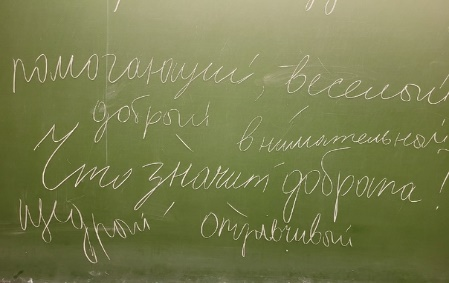 помогающий, веселый
добрый
внимательной
Что значит доброта!
щедрый отзывчивый